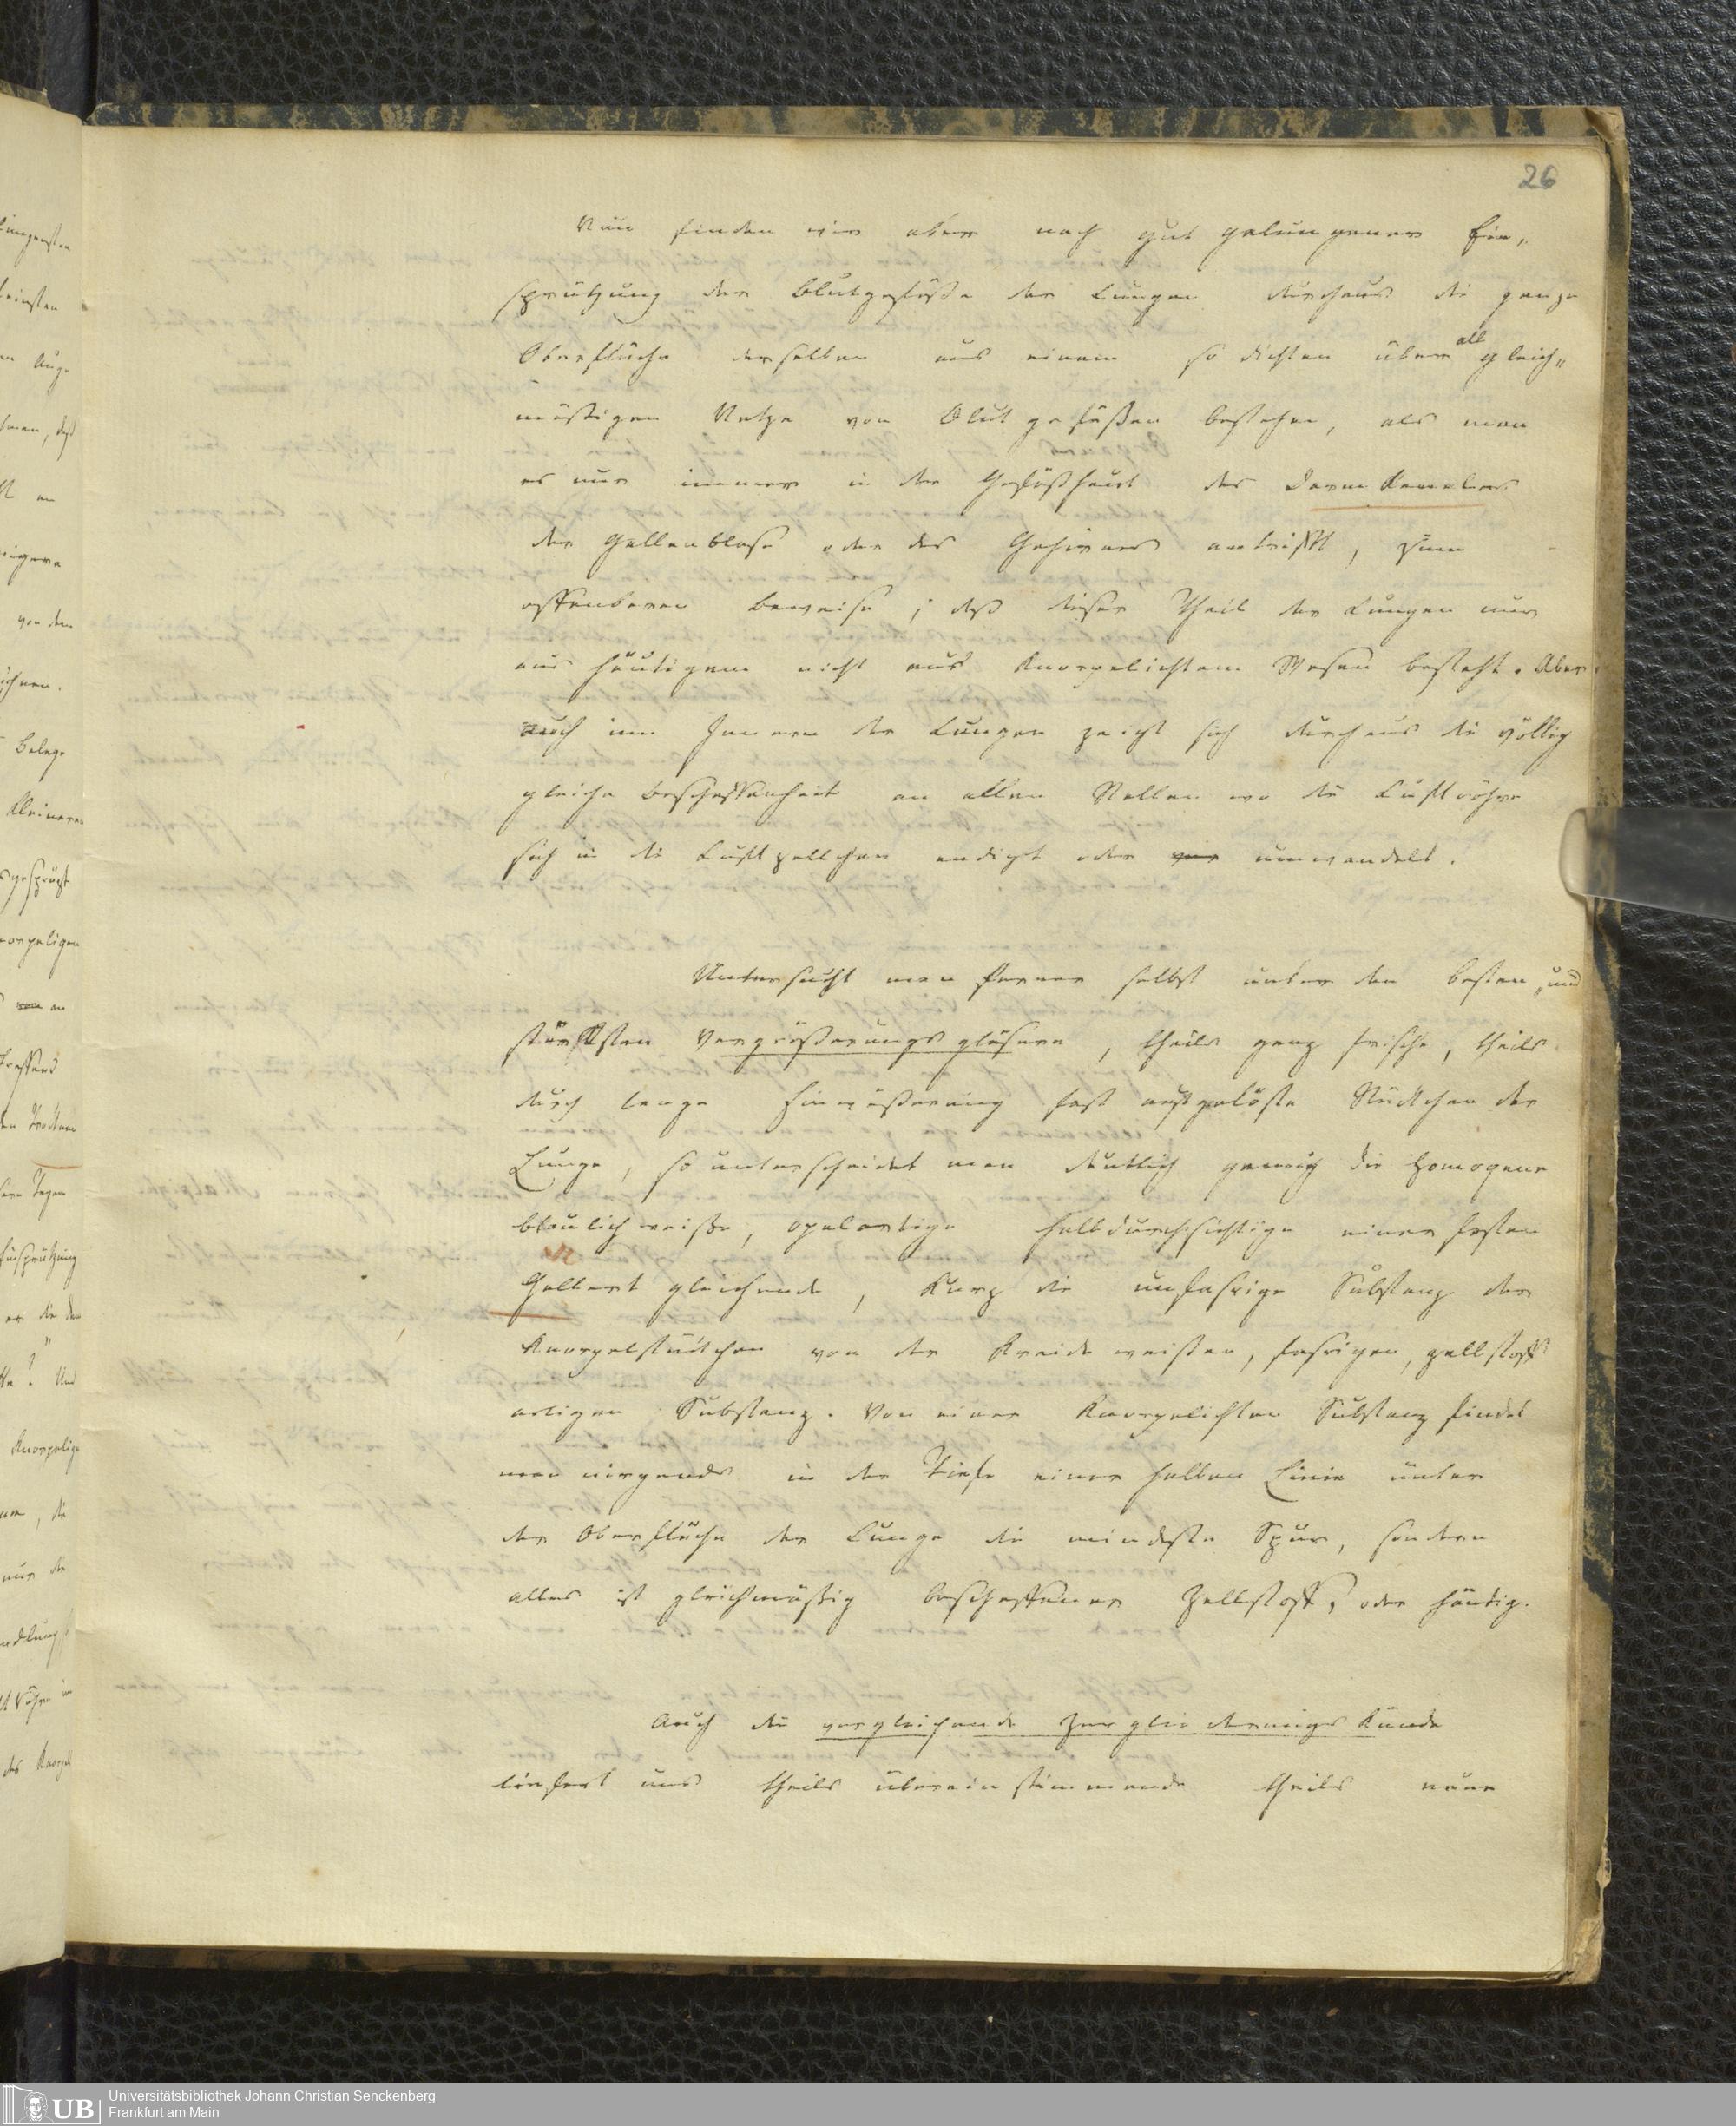 26
Nun finden wir aber nach gut gelungener Ein„
sprützung der Blutgefäße der Lungen durchaus die ganze
Oberfläche derselben aus einem so dichten überall gleich„
mäßigen Netze von Blutgefäßen bestehen, als man
es nur immer in der Gefäßhaut des Darmkanales
der Gallenblase oder des Gehirnes antrifft, zum
offenbaren Beweise, daß dieser Theil der Lungen nur
aus häutigem nicht aus knorpelichtem Wesen besteht. Aber
auch im Innern der Lungen zeigt sich durchaus die völlig
gleiche Beschaffenheit an allen Stellen wo die Luftröhre
sich in die Luftzellchen endigt oder umwandelt.
Untersucht man ferner selbst unter den besten und
stärksten Vergrößerungsgläsern, theils ganz frische, theils
durch lange Einwäßerung fast aufgelöste Stückchen der
Lunge, so unterscheidet man deutlich genug die homogene
blaulichweiße, opalartige halbdurchsichtige einer festen
Gallert gleichende, kurz die unfasrige Substanz der
Knorpelstückchen von der kreideweißen, fasrigen, zellstoff
artigen Substanz. Von einer knorpelichten Substanz findet
man nirgends in der Tiefe einer halben Linie unter
der Oberfläche der Lunge die mindeste Spur, sondern
alles ist gleichmäßig beschaffener Zellstoff, oder häutig.
Auch die vergleichende Zergliederungskunde
liefert uns theils übereinstimmende theils neue
UB Universitätsbibliothek Johann Christian Senckenberg
Frankfurt am Main